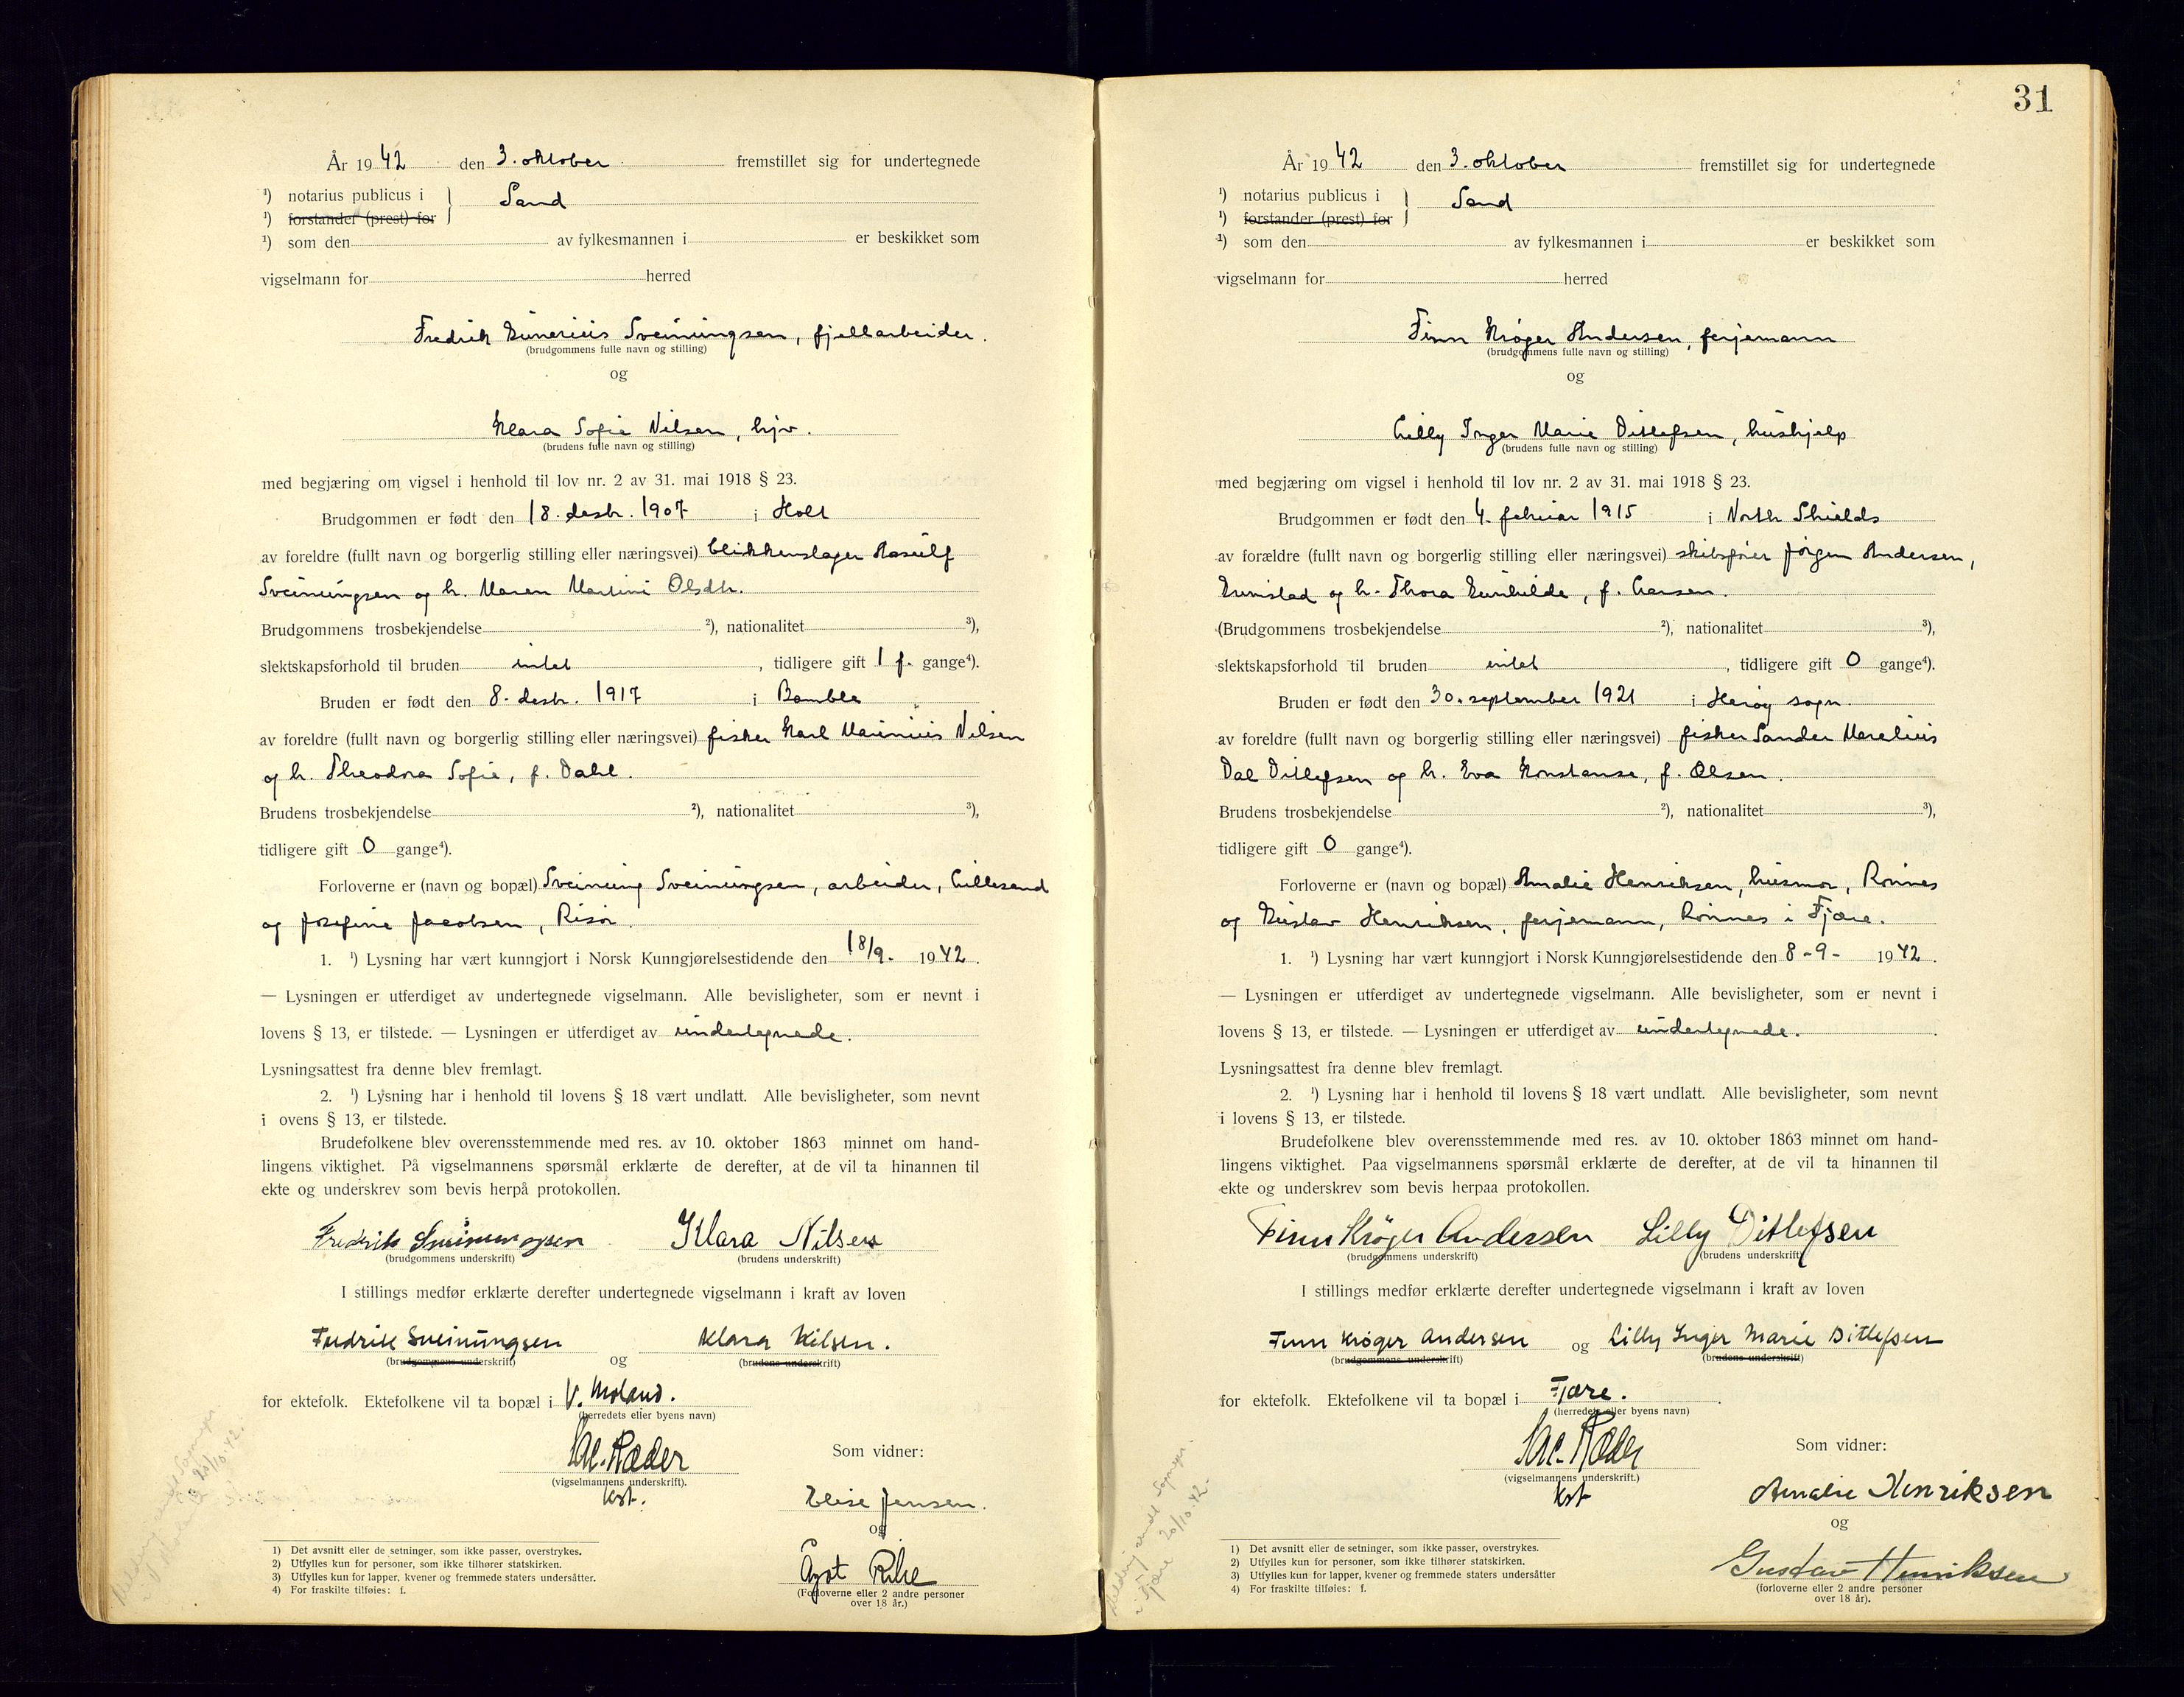 År 19 42 den 3. oktober fremstillet sig for undertegnede
¹) notarius publicus i } Sand
¹) forstander (prest) for
¹) som den av fylkesmannen i er beskikket som
vigselmann for herred
Fredrik Gunerius Sveinungsen, fjellarbeider.
(brudgommens fulle navn og stilling)
og
Klara Sofie Nilsen, hjv.
(brudens fulle navn og stilling)
med begjæring om vigsel i henhold til lov nr. 2 av 31. mai 1918 § 23.
Brudgommen er født den 18. desbr. 1907 i Holt
av foreldre (fullt navn og borgerlig stilling eller næringsvei) blikkenslager Aasulf
Sveinungsen og h. Maren Martine Olsdtr.
Brudgommens trosbekjendelse ²), nationalitet ³),
slektskapsforhold til bruden intet, tidligere gift 1 f. gange⁴).
Bruden er født den 8. desbr. 1917 i Bamble
av foreldre (fullt navn og borgerlig stilling eller næringsvei) fisker Karl Marinius Nilsen
og h. Theodora Sofie, f. Dahl.
Brudens trosbekjendelse ²), nationalitet ³),
tidligere gift 0 gange⁴).
Forloverne er (navn og bopæl) Sveinung Sveinungsen, arbeider, Lillesand
og Josefine Jacobsen, Risør.
1. ¹) Lysning har vært kunngjort i Norsk Kunngjørelsestidende den 18/9. 1942.
— Lysningen er utferdiget av undertegnede vigselmann. Alle bevisligheter, som er nevnt i
lovens § 13, er tilstede. — Lysningen er utferdiget av undertegnede.
Lysningsattest fra denne blev fremlagt.
2. ¹) Lysning har i henhold til lovens § 18 vært undlatt. Alle bevisligheter, som nevnt
i ovens § 13, er tilstede.
Brudefolkene blev overensstemmende med res. av 10. oktober 1863 minnet om hand-
lingens viktighet. På vigselmannens spørsmål erklærte de derefter, at de vil ta hinannen til
ekte og underskrev som bevis herpå protokollen.
Fredrik Sveinungsen Klara Nilsen
(brudgommens underskrift) (brudens underskrift)
I stillings medfør erklærte derefter undertegnede vigselmann i kraft av loven
Fredrik Sveinungsen og Klara Nilsen.
(brudgommens underskrift) (brudens underskrift)
for ektefolk. Ektefolkene vil ta bopæl i V. Moland.
(herredets eller byens navn)
Ræder Som vidner:
(vigselmannens underskrift).
kst. Elise Jensen.
og
Ågot Riise
(Forloverne eller 2 andre personer
over 18 år.)
1) Det avsnitt eller de setninger, som ikke passer, overstrykes.
2) Utfylles kun for personer, som ikke tilhører statskirken.
3) Utfylles kun for lapper, kvener og fremmede staters undersåtter.
4) For fraskilte tilføies: f.
31
År 19 42 den 3. oktober fremstillet sig for undertegnede
¹) notarius publicus i } Sand
¹) forstander (prest) for
¹) som den av fylkesmannen i er beskikket som
vigselmann for herred
Finn Krøger Andersen, ferjemann
(brudgommens fulle navn og stilling)
og
Lilly Inger Marie Ditlefsen, hushjelp
(brudens fulle navn og stilling)
med begjæring om vigsel i henhold til lov nr. 2 av 31. mai 1918 § 23.
Brudgommen er født den 4. februar 1915 i North Shields
av forældre (fullt navn og borgerlig stilling eller næringsvei) skibsfører Jørgen Andersen,
Grimstad og h. Thora Gunhilde, f. Larsen.
(Brudgommens trosbekjendelse ²), nationalitet ³),
slektskapsforhold til bruden intet, tidligere gift 0 gange⁴).
Bruden er født den 30. september 1921 i Herøy sogn.
av foreldre (fullt navn og borgerlig stilling eller næringsvei) fisker Sander Marelius
Dal Ditlefsen og h. Eva Konstanse, f. Olsen.
Brudens trosbekjendelse ²), nationalitet ³),
tidligere gift 0 gange⁴).
Forloverne er (navn og bopæl) Amalie Henriksen, husmor, Rønnes
og Gustav Henriksen, ferjemann, Rønnes i Fjære.
1. ¹) Lysning har vært kunngjort i Norsk Kunngjørelsestidende den 8-9- 1942.
— Lysningen er utferdiget av undertegnede vigselmann. Alle bevisligheter, som er nevnt i
lovens § 13, er tilstede. — Lysningen er utferdiget av undertegnede.
Lysningsattest fra denne blev fremlagt.
2. ¹) Lysning har i henhold til lovens § 18 vært undlatt. Alle bevisligheter, som nevnt
i lovens § 13, er tilstede.
Brudefolkene blev overensstemmende med res. av 10. oktober 1863 minnet om hand-
lingens viktighet. Paa vigselmannens spørsmål erklærte de derefter, at de vil ta hinannen til
ekte og underskrev som bevis herpaa protokollen.
Finn Krøger Andersen Lilly Ditlefsen
(brudgommens underskrift) (brudens underskrift)
I stillings medfør erklærte derefter undertegnede vigselmann i kraft av loven
Finn Krøger Andersen og Lilly Inger Marie Ditlefsen
(brudgommens underskrift) (brudens underskrift)
for ektefolk. Ektefolkene vil ta bopæl i Fjære.
(herredets eller byens navn)
Ræder Som vidner:
(vigselmannens underskrift.)
kst Amalie Henriksen
og
Gustav Henriksen
(forloverne eller 2 andre personer
over 18 år).
1) Det avsnitt eller de setninger, som ikke passer, overstrykes.
2) Utfylles kun for personer, som ikke tilhører statskirken.
3) Utfylles kun for lapper, kvener og fremmede staters undersåtter
4) For fraskilte tilføies: f.
Melding sendt Sognepr.
i Fjære 20/10.42.